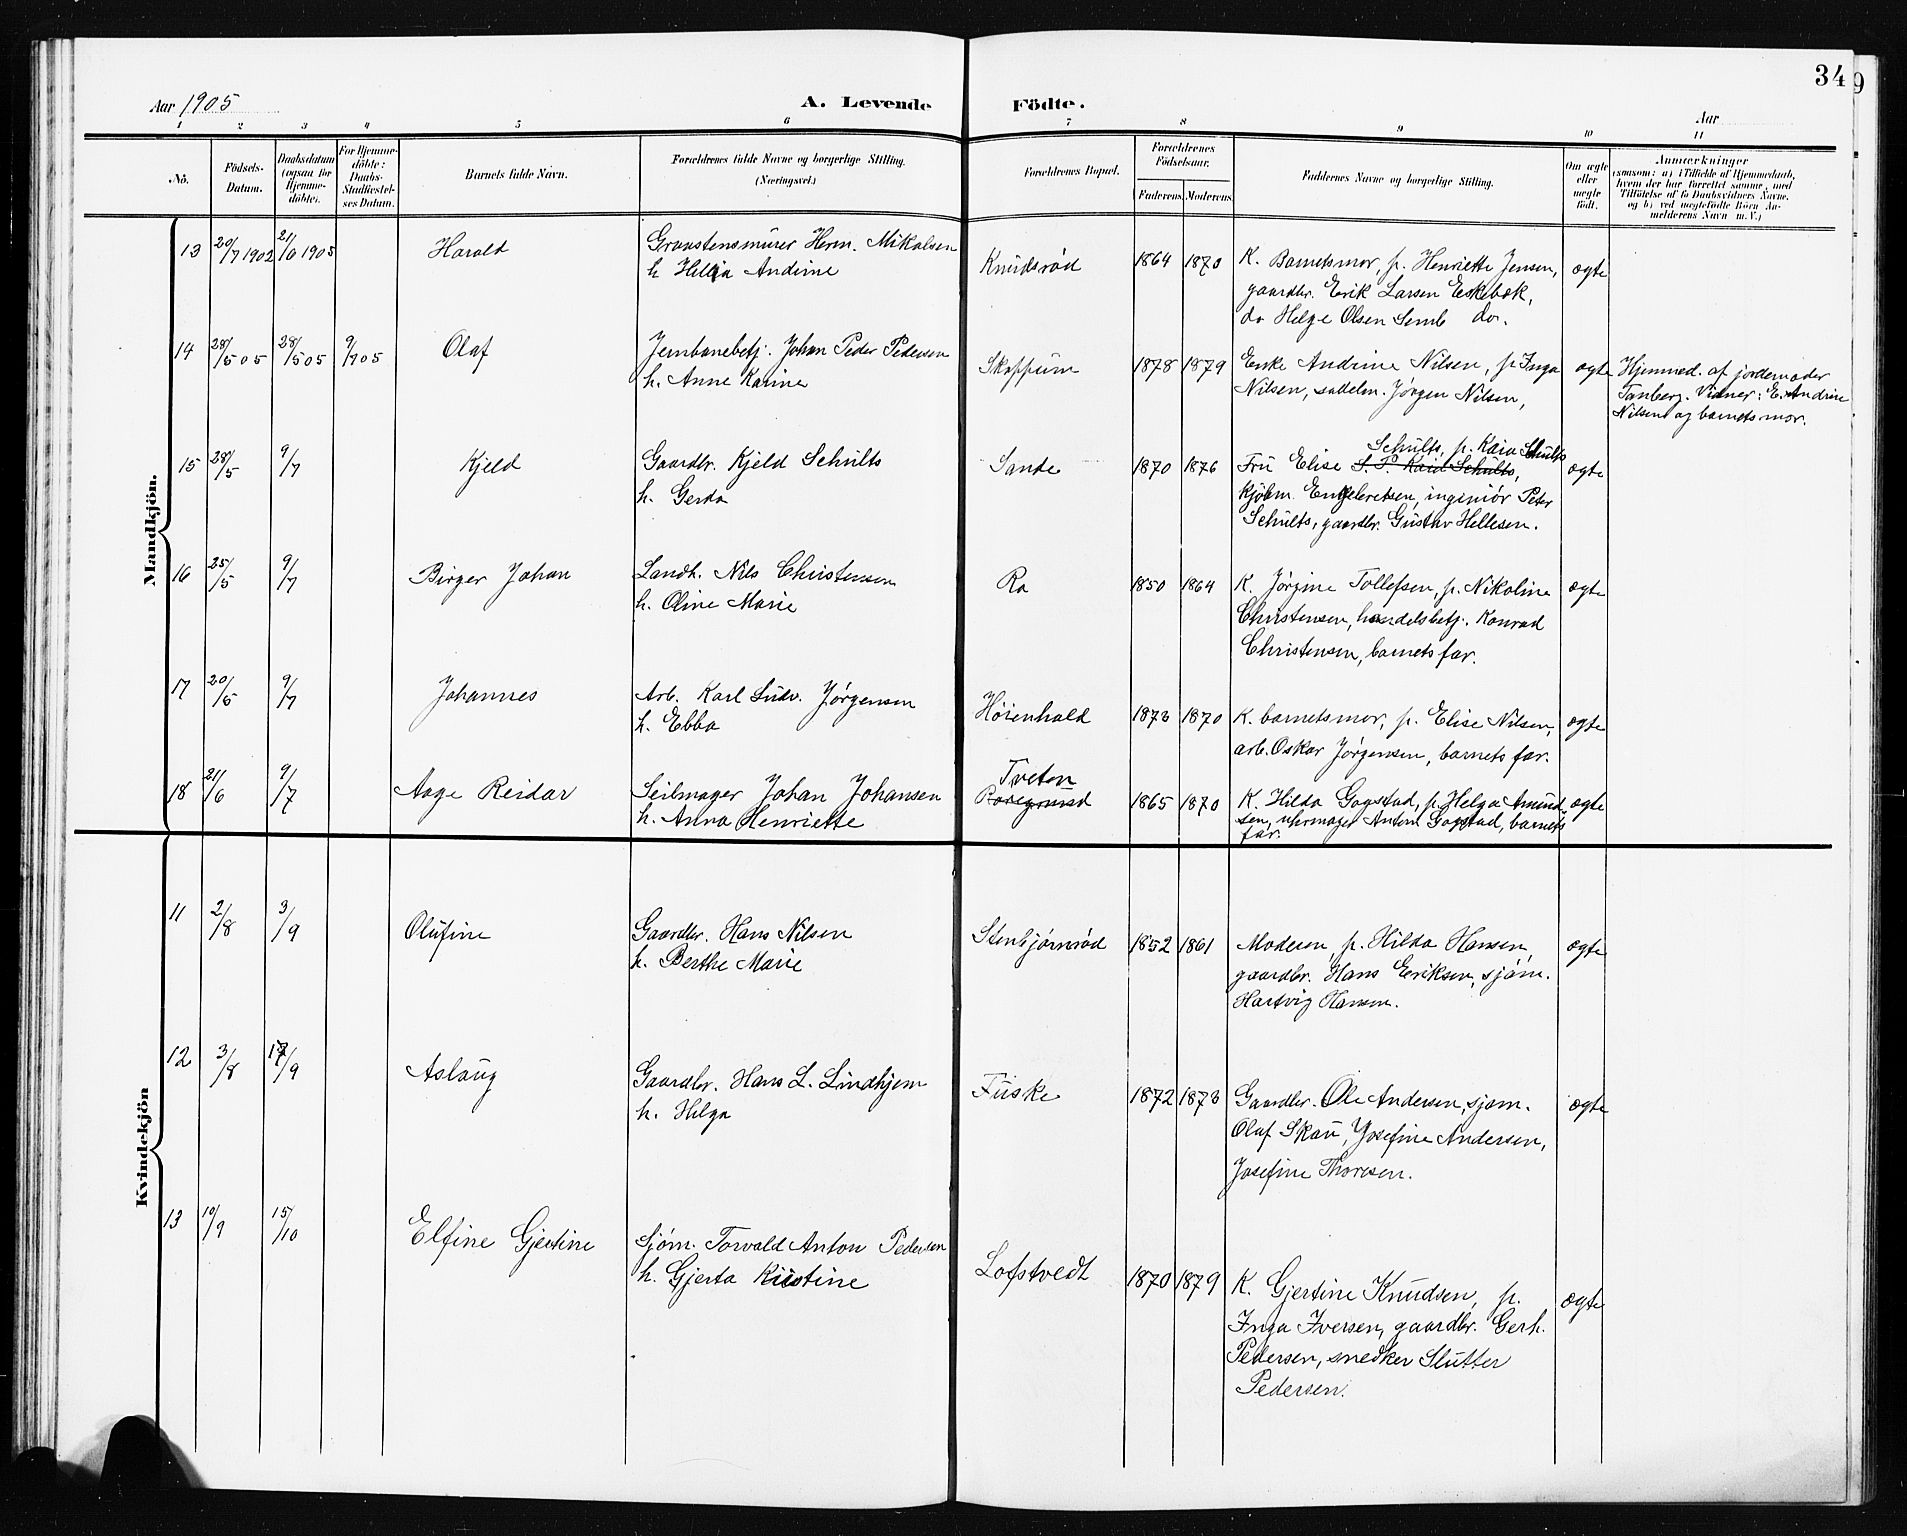 34
9
Aar 1905
A. Levende Födte.
Aar
1 2 3 4 5 6 7 8 9 10 11
Nö.
Födsels-
Datum.
Daabsdatum
(ogsaa for
Hjemme-
döbte).
For Hjemme-
döbte:
Daabs-
Stadfæstel-
ses Datum.
Barnets fulde Navn.
Forældrenes fulde Navne og borgerlige Stilling.
(Næringsvei.)
Forældrenes Bopæl.
Forældrenes
Födselsaar.
Faderens Moderens
Faddernes Navne og borgerlige Stilling.
Om ægte
eller
uægte
födt.
Anmærkninger
(saasom: a) i Tilfælde af Hjemmedaab,
hvem der har forrettet samme, med
Tilföielse af to Daabsvidners Navne,
og b) ved uægtefödte Börn An-
melderens Navn m. V.)
Mandkjön.
13 20/7 1902 21/6 1905 Harald
Graastensmurer Herm. Mikalsen
h Helga Andrine
Knudsröd 1864 1870
K. Barnets mor, p. Henriette Jensen,
gaardbr. Erik Larsen Eskebæk,
do Helge Olsen Semb do.
ægte
14 28/5 05 28/5 05 9/7 05 Olaf
Jernbanebetj. Johan Peder Pedersen
h. Anne Karine
Skoppum 1878 1879
Enke Andrine Nilsen, p. Inga
Nilsen, sadelm. Jørgen Nilsen,
ægte
Hjemmed. af jordemoder
Tanberg. Vidner: E. Andrine
Nilsen og barnets mor.
15 28/5 9/7 Kjeld
Gaardbr. Kjeld Schults
h. Gerda
Sande 1870 1876
Schults, p. Kaia Schults
Fru Elise
kjøbm. Engebretsen, ingeniør Peter
Schults, gaardbr. Gustav Hellesen.
ægte
16 25/5 9/7 Birger Johan
Landh. Nils Christensen
h. Oline Marie
Ra 1850 1864
K. Jørgine Tollefsen, p. Nikoline
Christensen, handelsbetj. Konrad
Christensen, barnets far.
ægte
17 20/5 9/7 Johannes
Arb. Karl Ludv. Jørgensen
h. Ebba
Høienhald 1873 1870
K. barnets mor, p. Elise Nilsen,
arb. Oskar Jørgensen, barnets far.
ægte
18 21/6 9/7 Aage Reidar
Seilmager Johan Johansen
h. Anna Henriette
Tveten
1865 1870
K. Hilda Gogstad, p. Helga Amund-
sen, uhrmager Anton Gogstad, barnets
far.
ægte
Kvindekjön
11 2/8 3/9 Olufine
Gaardbr. Hans Nilsen
h. Berthe Marie
Stenbjørnrød 1852 1861
Moderen, p. Hilda Hansen,
gaardbr. Hans Eriksen, sjøm.
Hartvig Hansen.
ægte
12 3/8 17/9 Aslaug
Gaardbr. Hans L. Lindhjem
h. Helga
Fuske 1872 1873
Gaardbr. Ole Andersen, sjøm.
Olaf Skau, Josefine Andersen,
Josefine Thoresen.
ægte
13 10/9 15/10 Elfine Gjertine
Sjøm. Torvald Anton Pedersen
h. Gjerta Kristine
Lofstvedt 1870 1879
K. Gjertine Knudsen, p.
Inga Iversen, gaardbr. Gerh.
Pedersen, snedker Slutter
Pedersen.
ægte